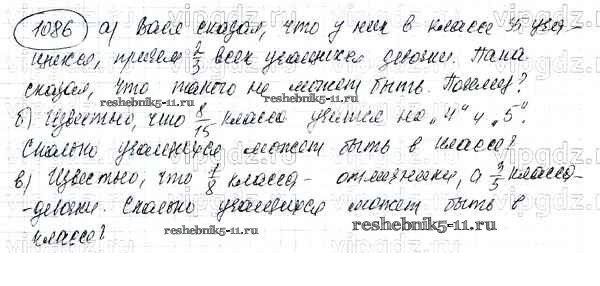 1086 а) Валя сказал, что у них в классе 35 учат-
инехся, причем 2/3 всех учащихся девочки. Папа
сказал, что такого не может быть. Почему?
reshebnik5-11.ru
б) Известно, что 8/15 класса учится на „4" и „5".
reshebnik5-11.ru
Сколько учащихся может быть в классе?
в) Известно, что 1/8 класса - отличники, а 3/5 класса-
-девочки. Сколько учащихся может быть в
классе?
reshebnik5-11.ru
vipgdz.com